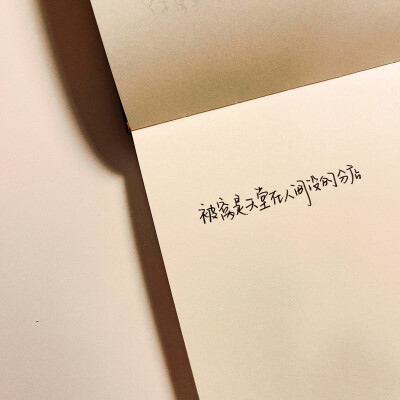 被窝是天堂在人间设的分店